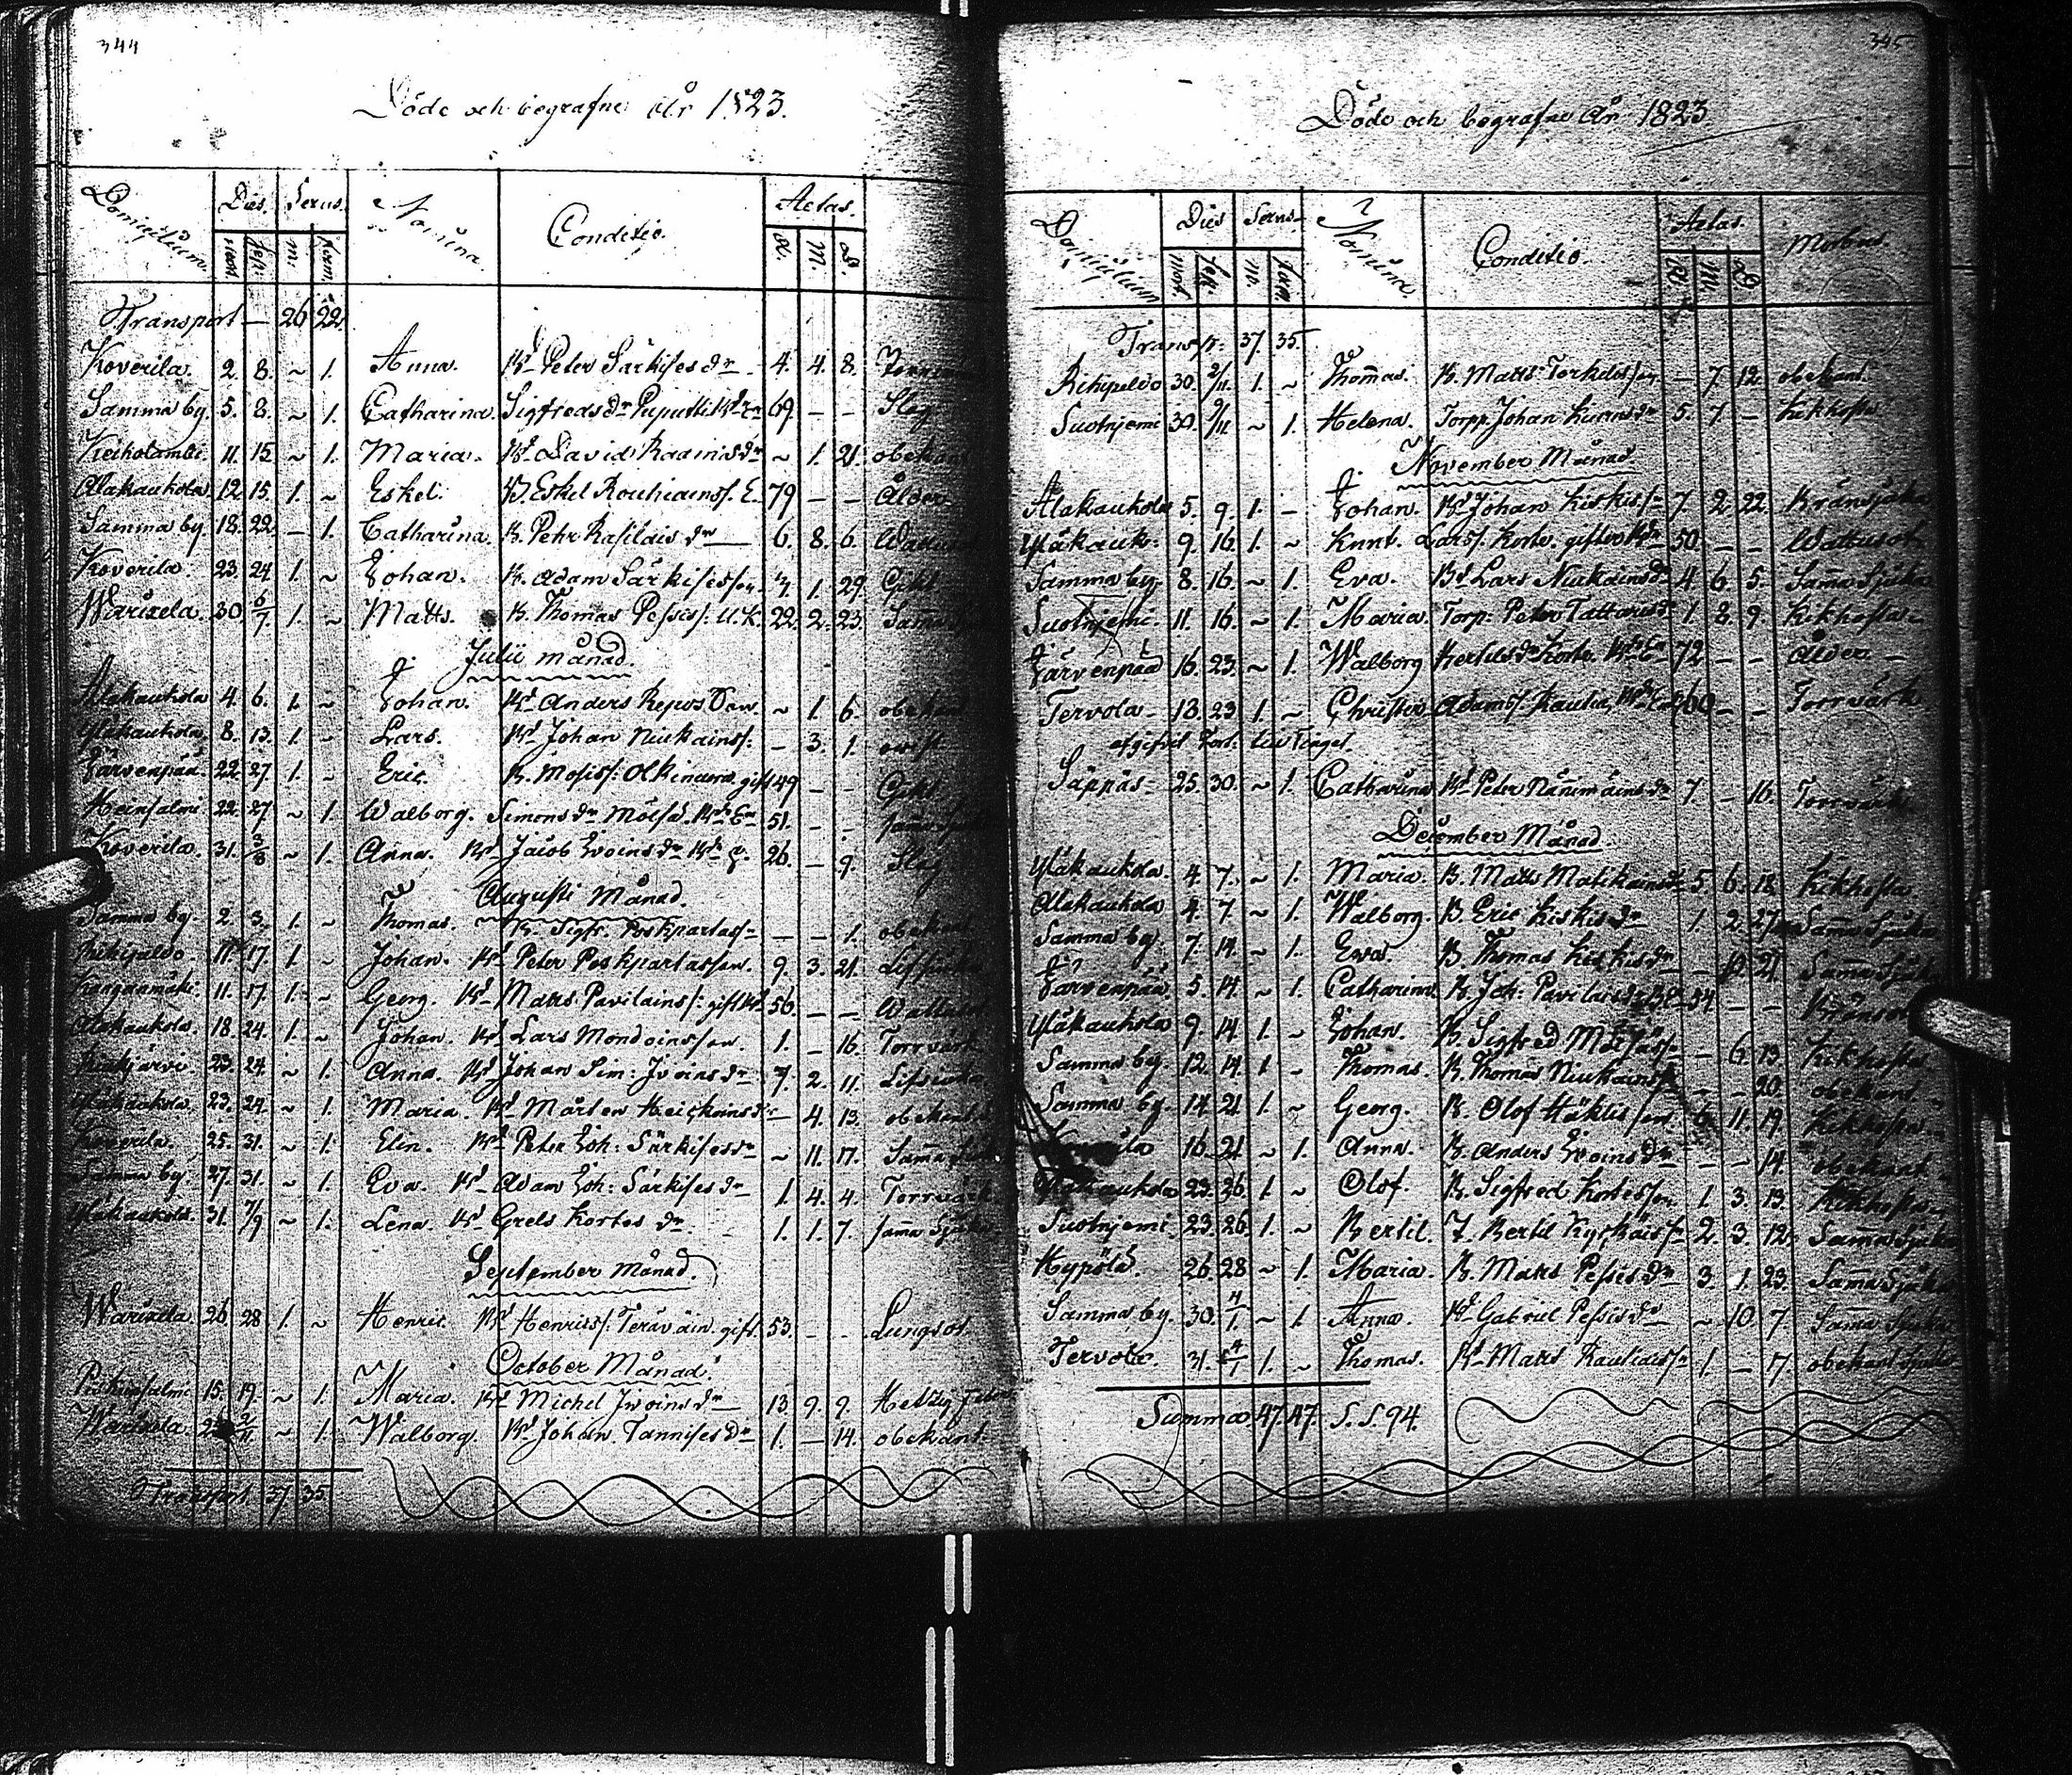 344
Döde och begrafne År 1823.
Domicilium. Dies. Sexus. Nomina. Conditio. Aetas.
mort. sep. m. fem. A. M. D.
Transport — 26 22
Koverila. 2. 8. ~ 1. Anna. Bd Peter Särkises dr 4. 4. 8.
Samma by. 5. 8. ~ 1. Catharina. Sigfreds dr Puputti 69. — — Slag
11. 15 ~ 1. Maria. Bd David dr ~ 1. 21. obekant
Alakaukola. 12. 15. 1. ~ Eskel. B. Eskel Rouhiains. E. 79 — — Ålder
Samma by 18. 22. — 1. Catharina. B. Pehr Rasilais dr 6. 8. 6.
Koverila. 23. 24 1. ~ Johan. B. Adam Särkisesson 1. 29.
Warixela. 30. 6/7. 1. ~ Matts. B. Thomas Pessis. U.K. 22. 2. 23.
Julii månad.
Alakaukola 4. 6. 1. ~ Johan. Bd Anders Repos Son. ~ 1. 6. obekant
Yläkaukola. 8. 13. 1. ~ Lars. Bd Johan Niukains. — 3. 1.
Järvenpää. 22. 27 1. ~ Eric. B. Mosiss. Olkinuora gift 49 — —
Heinsalmi 22. 27 ~ 1. Walborg. Simons dr Mölsä. 51. — —
Koverila. 31. 3/8 ~ 1. Anna. Bd Jacob Iwoins dr 26. — 9. Slag
Augusti Månad.
Samma by. 2. 3. 1. ~ Thomas. B. Sigfr. Poskpartas — — 1. obekant
Riihipeldo. 11. 17. 1. ~ Johan. Bd Peter Poskpartasson. 9. 3. 21.
Kangasmäki. 11. 17. 1. ~ Georg. Bd Matts Pavilains. gift 56. — —
Alakaukola. 18. 24. 1. ~ Johan. Bd Lars Mondoinsson. 1. — 16. Torrvärk
23. 24. ~ 1. Anna. Bd Johan Sim: Iwoins dr 7. 2. 11.
Yläkaukola. 23. 24. ~ 1. Maria. Bd Mårten Heickoins dr — 4. 13. obekant
Koverila. 25. 31. ~ 1. Elin. Bd Peter Joh: Särkises dr ~ 11. 17.
Samma by. 27. 31. ~ 1. Eva. Bd Adam Joh: Särkises dr 1. 4. 4. Torrvärk
Yläkaukola. 31. 7/9 ~ 1. Lena. Bd Grels Kortes dr 1. 1. 7. Sama Sjuka
September Månad.
Warixela 26. 28 1. ~ Henric. Bd Henricss. Teräväin. gift. 53. — — Lungsot
October Månad.
15. 19. ~ 1. Maria. Bd Michel Iwoins dr 13 9. 9. Hetsig Feber
Warixela 2/11. ~ 1. Walborg. Bd Johan Tannises dr 1. — 14. obekant.
Transport 37 35
345
Döde och begrafne År 1823.
Domicilium Dies Sexus. Nomina. Conditio. Aetas. Morbus
mort. sep. m. fem. A. M. D.
Transp. 37. 35.
Riihipeldo 30. 2/11. 1. ~ Thomas. B. Matts Torkelsson — 7. 12. obekant.
Suotniemi 30. 9/11 ~ 1. Helena. Torpp. Johan dr 5. 7. — Kikhosta
November Månad
Alakaukola 5. 9. 1. — Johan. Bd Johan Kiskis 7. 2. 22. Bränsjuka
Yläkauk: 9. 16. 1. ~ Knut. Larss. Korte. gifter 50. — — Wattusot
Samma by. 8. 16. ~ 1. Eva. Bd Lars Niukains dr 4. 6. 5. Sama Sjuka
Suotniemi. 11. 16. ~ 1. Maria. Torp. Peter Tattaris dr 1. 8. 9. Kikhosta
Järvenpää 16. 23. ~ 1. Walborg Bertils dr Korte 72 — — Ålder
Tervola 18. 23 1. ~ Christer Adamss. Raukia 60 — — Torrvärk
Säppäs 25. 30. ~ 1. Catharina Bd Peter dr 7. — 16. Torrvärk
December Månad
Yläkaukola. 4. 7. ~ 1. Maria. B. Matts Matikains dr 5. 6. 18. Kikhosta
Alakaukola 4. 7. ~ 1. Walborg. B. Eric Kiskis dr 1. 2. 27 Sama Sjuka
Samma by. 7. 14. ~ 1. Eva. B. Thomas Kiskis dr — 21. Sama Sjuka
Järvenpää. 5. 14. ~ 1. Catharina. B. Joh: Pavilais dr — —
Yläkaukola 9. 14 1. ~ Johan. B. Sigfred Mölsäs — 6. 13. Kikhosta
Samma by. 12. 14. 1. ~ Thomas. B. Thomas Niukains — — 20. obekant
Samma by. 14 21. 1. ~ Georg. B. Olof Häklis son 6. 11. 19. Kikhosta
16. 21. ~ 1. Anna. B. Anders Iwoins dr — — 14. obekant
23. 26. 1. ~ Olof. B. Sigfred Kortesson 1. 3. 13. Kikhosta
Suotniemi. 23. 26. 1. ~ Bertil. T. Bertil 2. 3. 12. Sama Sjuka
Kypölä. 26. 28 ~ 1. Maria. B. Matts Pessis dr 3. 1. 23. Sama Sjuka
Samma by. 30. 4/1. ~ 1 Anna. Bd Gabriel Pessis dr ~ 10. 7. Sama Sjuka
Tervola. 31. 4/1 1. ~ Thomas. Bd Matts Raukiais 1. — 17. obekant Sjukdom
Summa. 47. 47. S. S. 94.